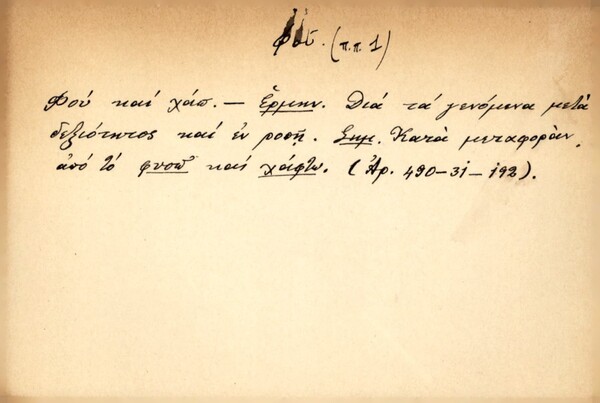 φού. (π.π 1)
Φού καί χάπ. — Ἑρμην. Διά τά γενόμενα μετά
δεξιότητος καί ἐν ροπῇ. Σημ. Κατὰ μεταφορὰν
ἀπό τό φυσῶ καί χάφτω. (Ἀρ. 490-31-192).